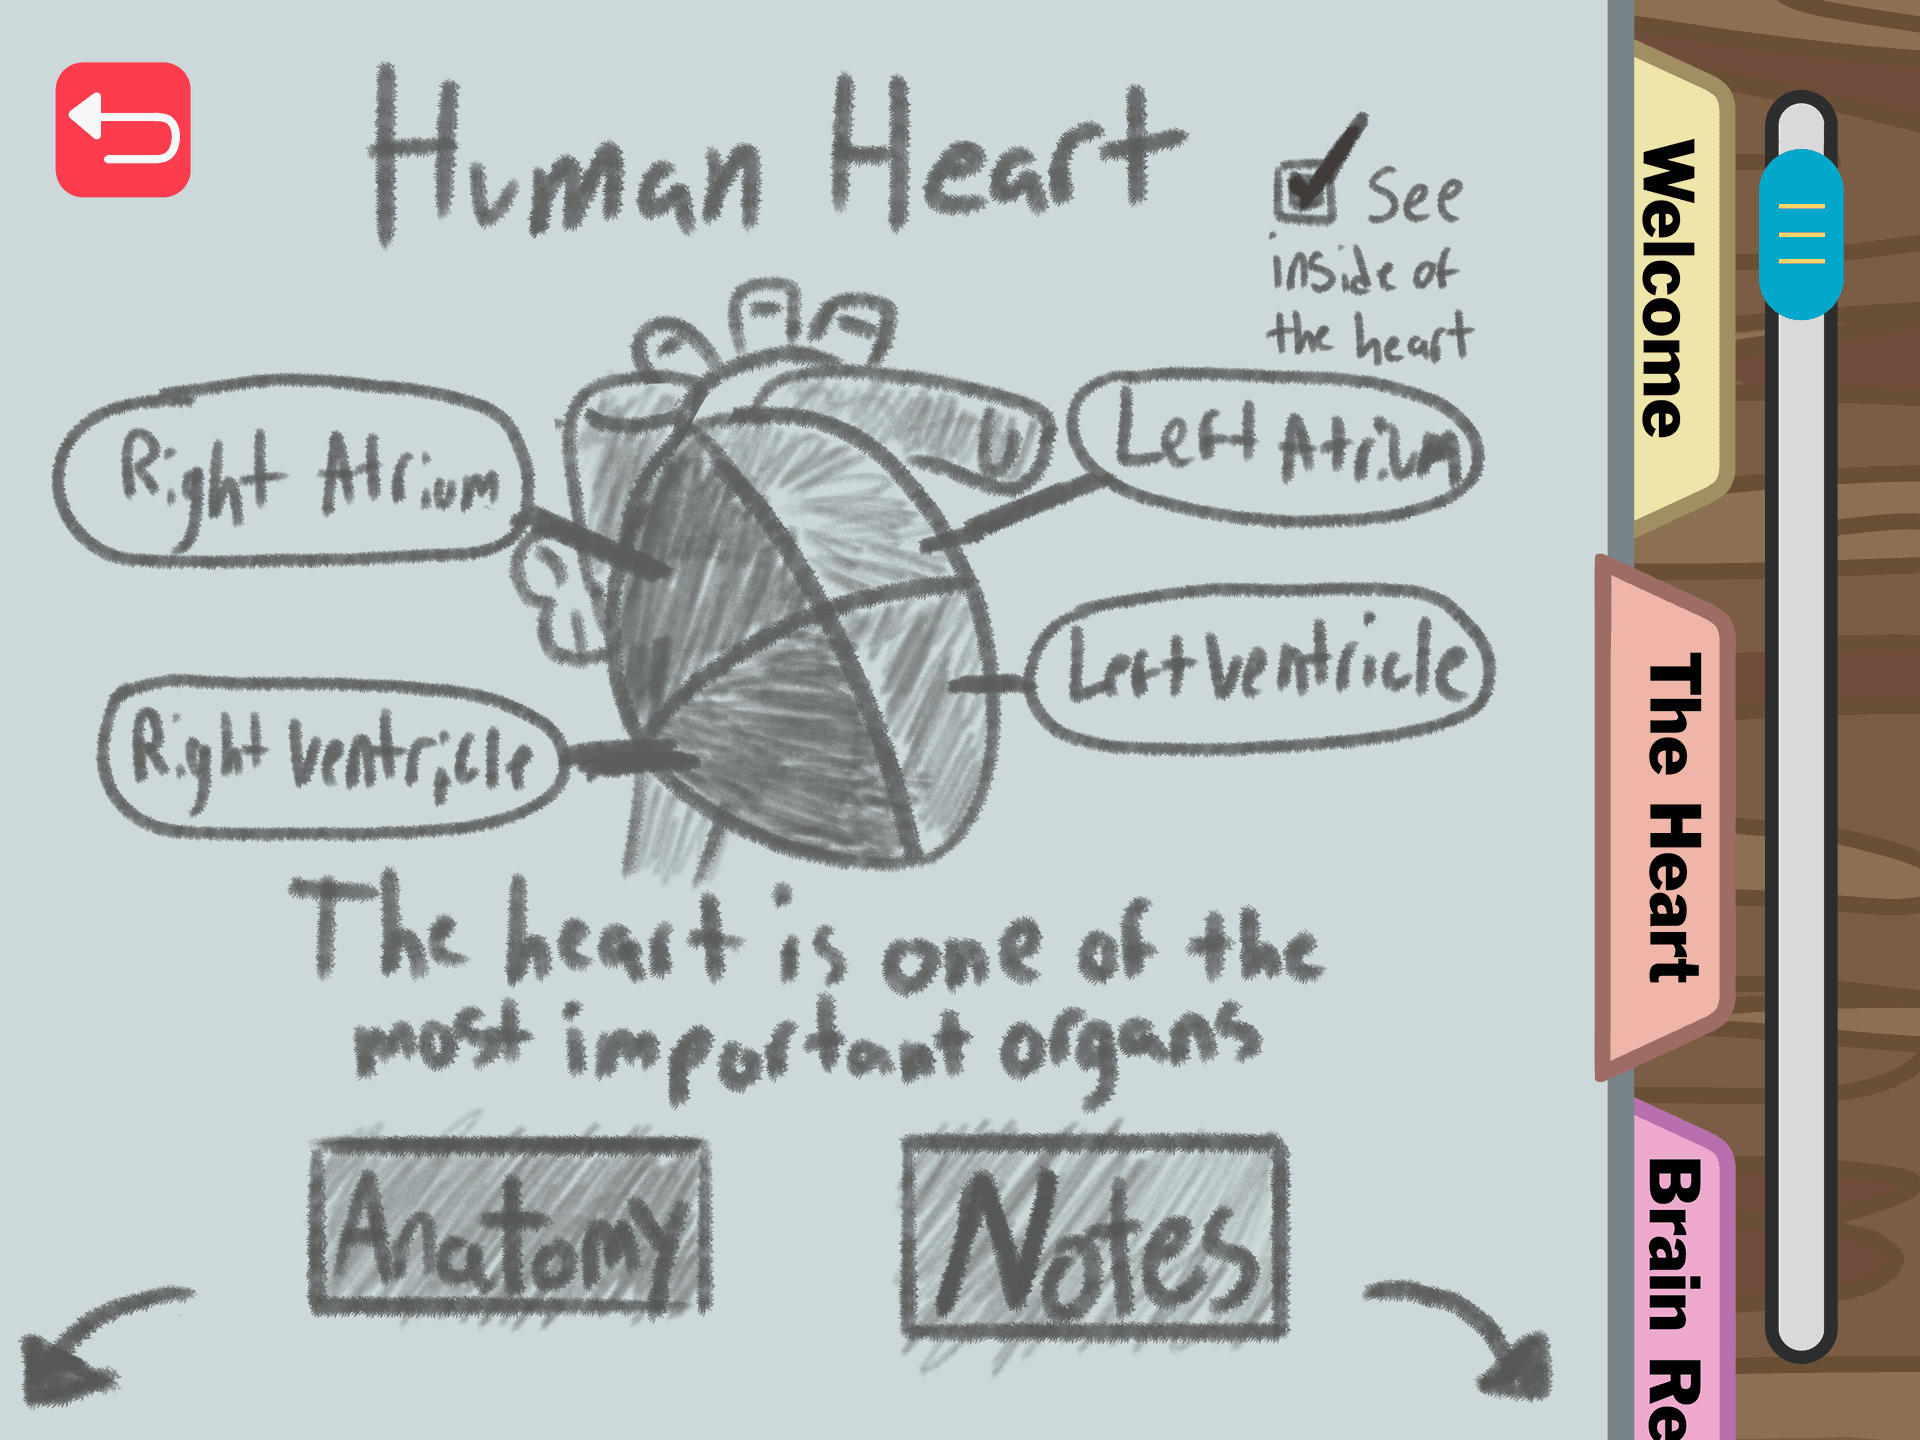 Human Heart
See
inside of
the heart
Right Atrium
Left Atrium
Left Ventricle
Right Ventricle
The heart is one of the
most important organs
Anatomy
Notes
Welcome
The Heart
Brain Re